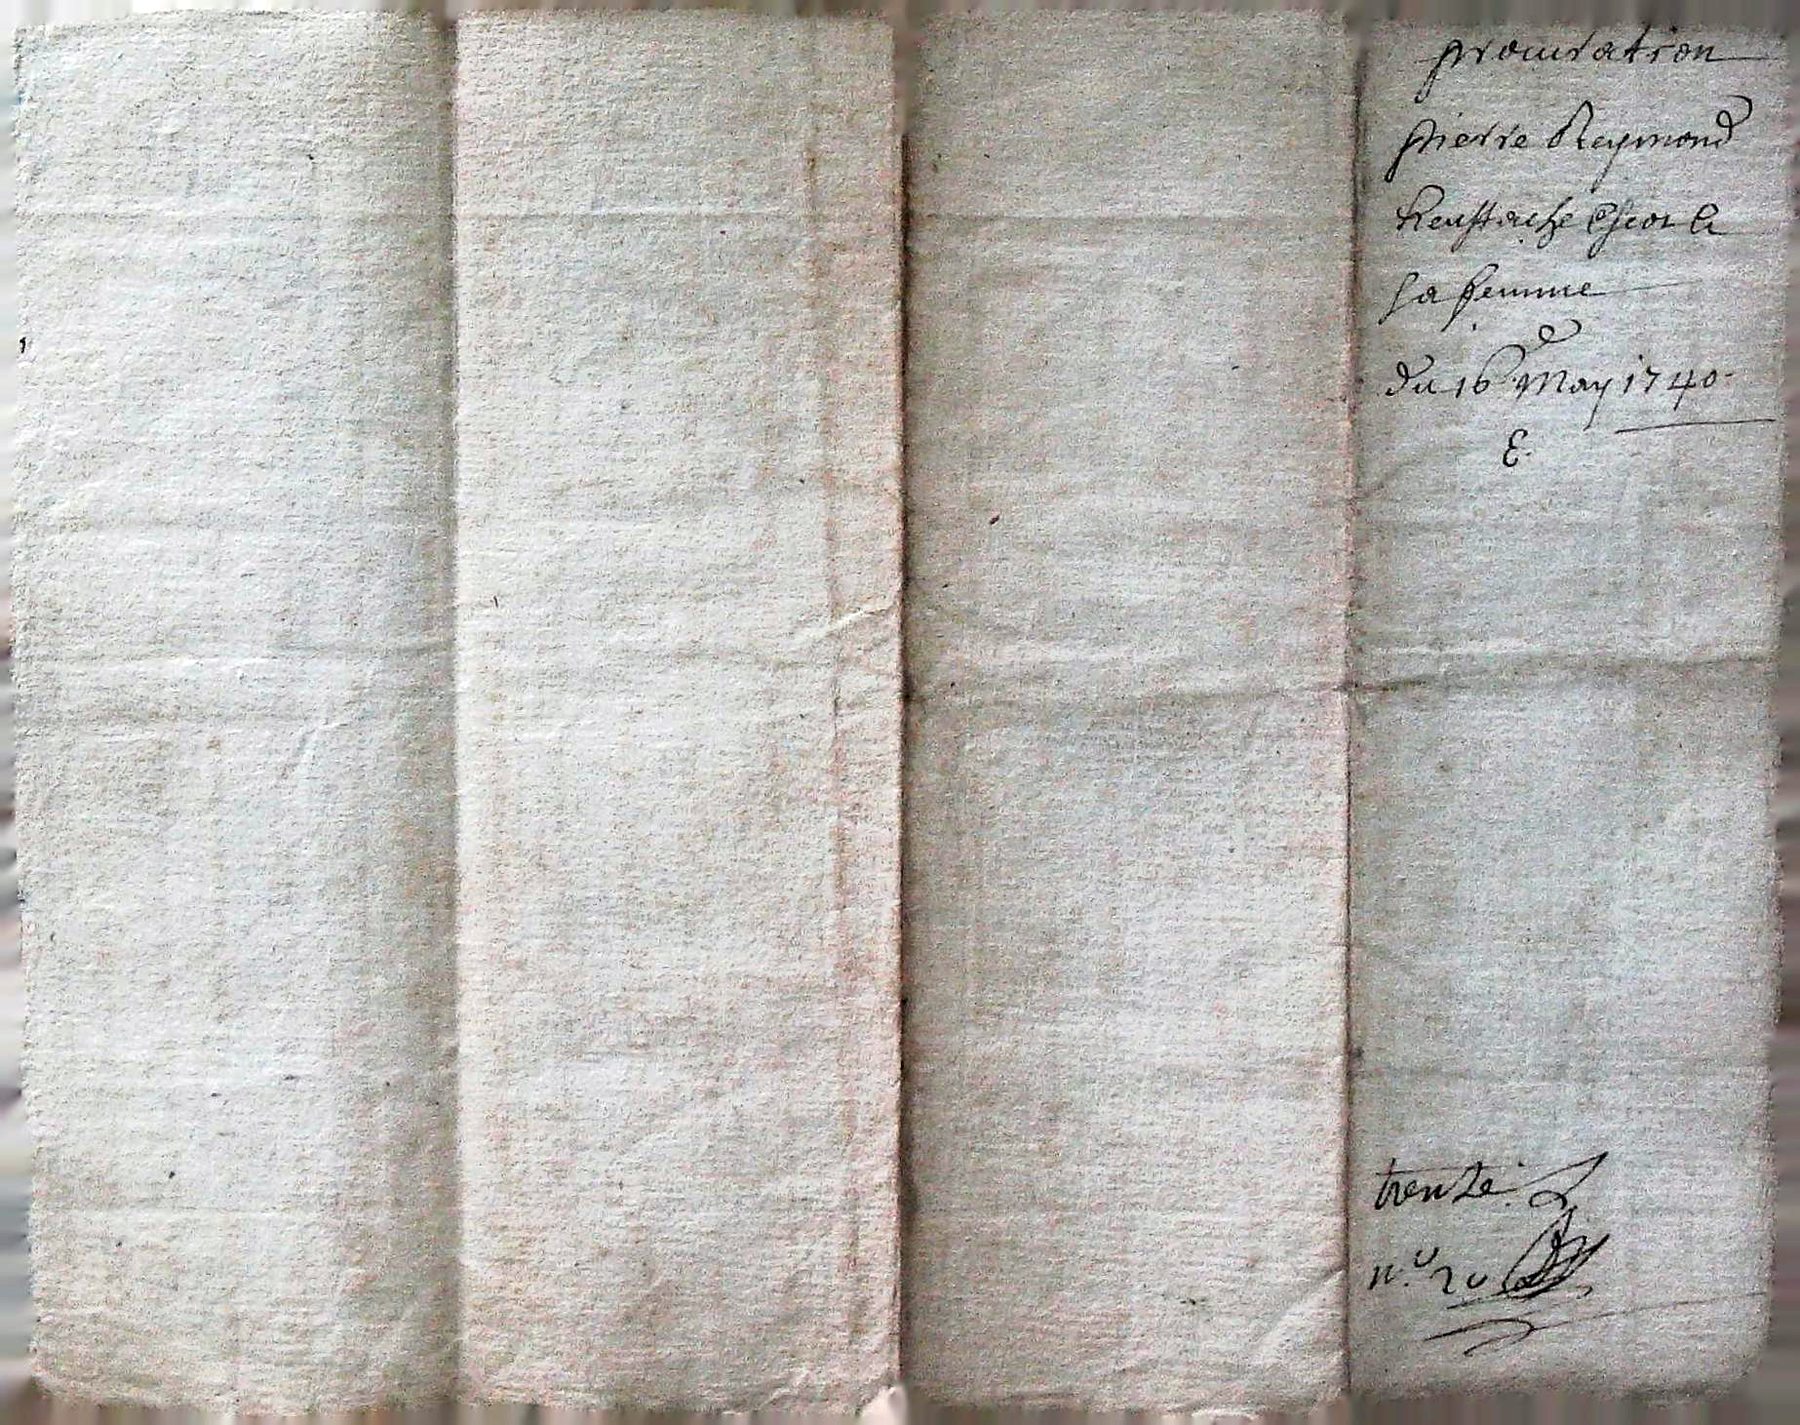 procuration
pierre Reymond
heustache
sa femme
du 16e May 1740
E.
trente
n.o 20